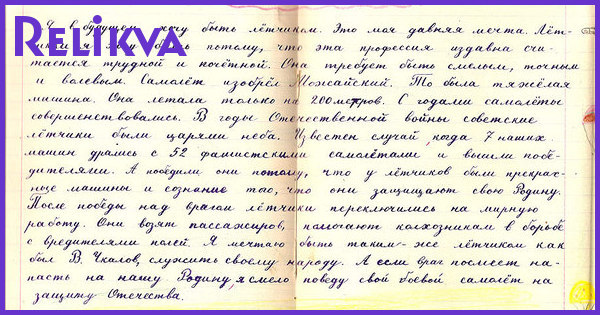 RELIKVA
Я в будущем хочу быть лётчиком. Это моя давняя мечта. Лёт-
чиком я хочу быть потому, что эта профессия издавна счи-
тается трудной и почётной. Она требует быть смелым, точным
и волевым. Самолёт изобрёл Можайский. То была тяжёлая
машина. Она летала только на 200 метров. С годами самолёты
совершенствовались. В годы Отечественной войны советские
лётчики были царями неба. Известен случай, когда 7 наших
машин дрались с 52 фашистскими самолётами и вышли побе-
дителями. А победили они потому, что у лётчиков были прекрас-
ные машины и сознание того, что они защищают свою Родину.
После победы над врагом лётчики переключились на мирную
работу. Они возят пассажиров, помогают колхозникам в борьбе
с вредителями полей. Я мечтаю быть таким-же лётчиком как
был В. Чкалов, служить своему народу. А если враг посмеет на-
пасть на нашу Родину, я смело поведу свой боевой самолёт на
защиту Отечества.